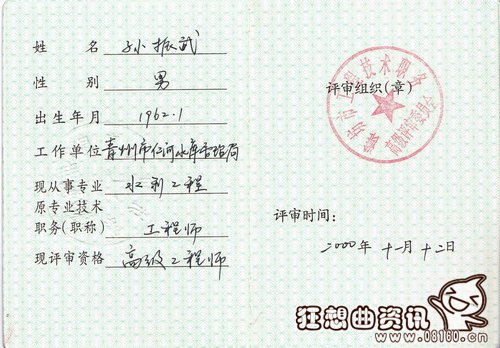 姓 名 孙振武
性 别 男
出生年月 1962.1
工作单位 青州市仁河水库管理局
现从事专业 水利工程
原专业技术
职务(职称) 工程师
现评审资格 高级工程师
坊市工程技术职务
高级评审委员会
评审组织(章)
评审时间:
2000年 十一月 十二日
狂想曲资讯
www.08160.cn